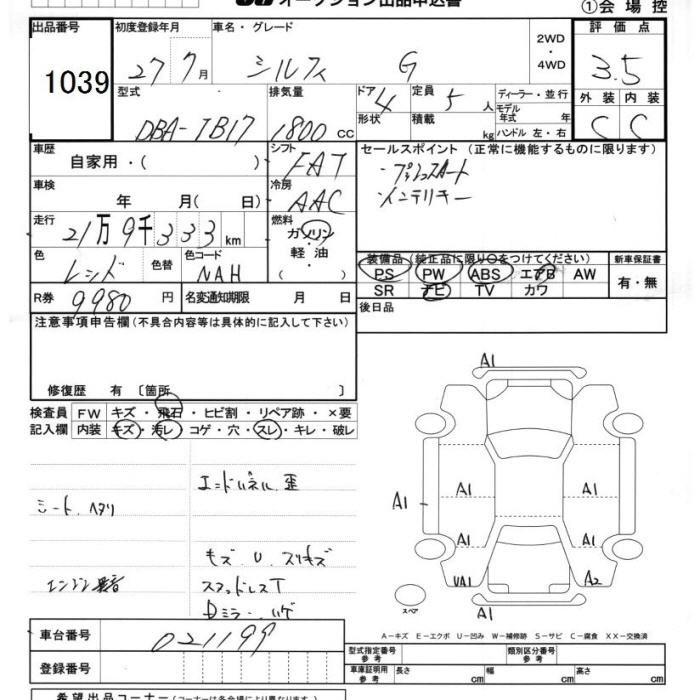 オークション出品申込書
①会場控
出品番号
1039
初度登録年月
27 7月
車名・グレード
シルフィ G
2WD
・
4WD
評価点
3.5
型式
DBA-TB17
排気量
1800 cc
ドア 4
形状
定員 5 人
積載 kg
ディーラー・並行
モデル
年式 年
ハンドル 左・右
外装 内装
C C
車歴
自家用・( )
シフト
FAT
セールスポイント (正常に機能するものに限ります)
・プッシュスタート
・インテリキー
車検
年 月( 日)
冷房
AAC
走行
21万9千333km
燃料
ガソリン
・
軽油
( )
色
レッド
色替
色カード
NAH
装備品 (純正品に限り○をつけてください)
PS PW ABS エアB AW
SR ナビ TV カワ
新車保証書
有・無
R券
9980円
名変通知期限 月 日
後日品
注意事項申告欄(不具合内容等は具体的に記入して下さい)
修復歴 有 〔箇所 〕
検査員 FW キズ・飛石・ヒビ割・リペア跡・×要
記入欄 内装 キズ・汚レ・コゲ・穴・スレ・キレ・破レ
エンドパネル 歪
シート、ヘタリ
キズ・U・スリキズ
エンジン異音
スタッドレスT
Dミラー・ハゲ
A1
A1 A1 A1
A1 A1
UA1 A2
A1
スペア
A-キズ E-エクボ U-凹み W-補修跡 S-サビ C-腐食 XX-交換済
車台番号
021199
登録番号
型式指定番号
参考
類別区分番号
参考
車庫証明用
参考
長さ cm 幅 cm 高さ cm
希望出品コーナー(コーナーは各会場により異なります。)